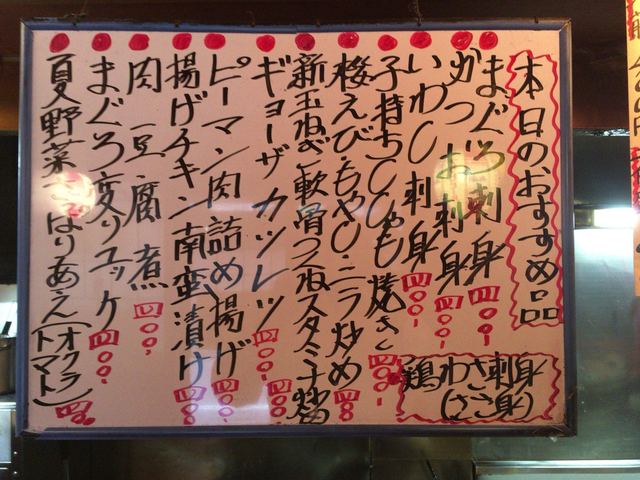 本日のおすすめ品
まぐろ刺身 四〇〇.
かつお刺身 四〇〇.
いわし刺身 四〇〇.
子持ちししゃも焼き 四〇〇.
桜えび・もやし・ニラ炒め 四〇〇
新玉ねぎ軟骨つくねスタミナ炒
ギョーザカツレツ 四〇〇.
ピーマン肉詰め揚げ 四〇〇
揚げチキン南蛮漬け 四〇〇
肉豆腐煮 四〇〇.
まぐろ変りユッケ 四〇〇
夏野菜さっぱりあえ(オクラトマト)
鶏わさ刺身
(ささ身)